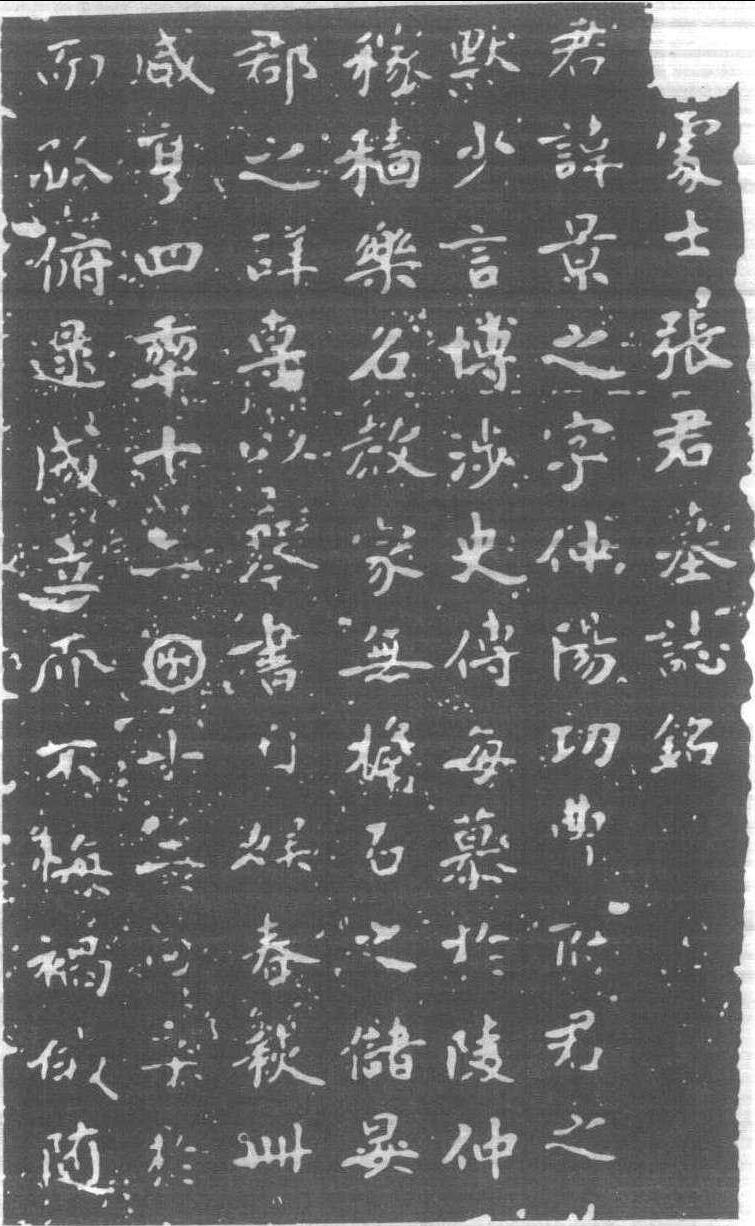 處士張君墓誌銘
君諱景之字仲陽功曹府君之
默少言博涉史傳每慕於陵仲
稼穡樂名教家無檐石之儲晏
郡之詳專以琴書自娛春秋卌
咸亨四年十二於
而俯逮成立而不悔禍似随